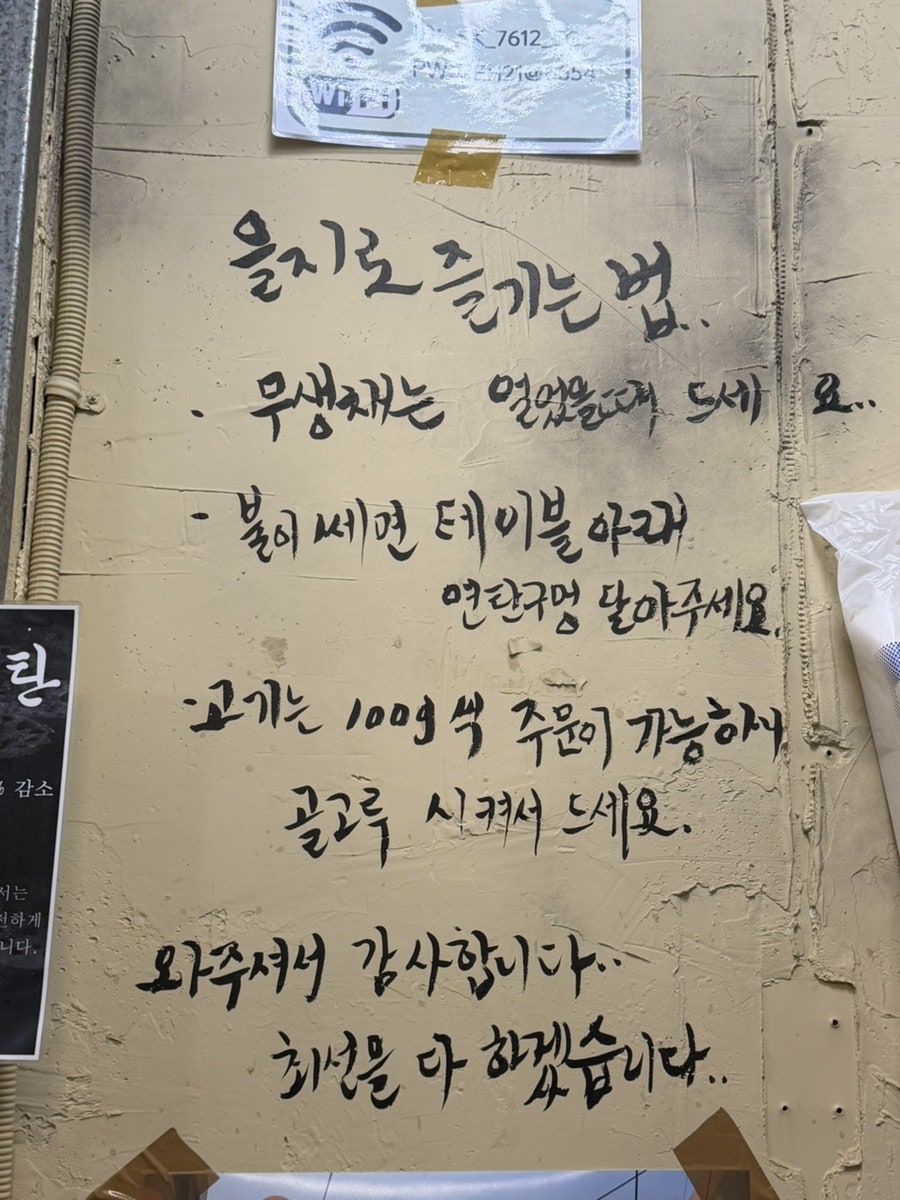 WiFi
을지로 즐기는 법..
· 무생채는 얼었을때 드세 요..
· 불이 쎄면 테이블 아래
연탄구멍 닫아주세요.
· 고기는 100g씩 주문이 가능하니
골고루 시켜서 드세요.
와주셔서 감사합니다..
최선을 다 하겠습니다..
탄
% 감소
서는
전하게
니다.